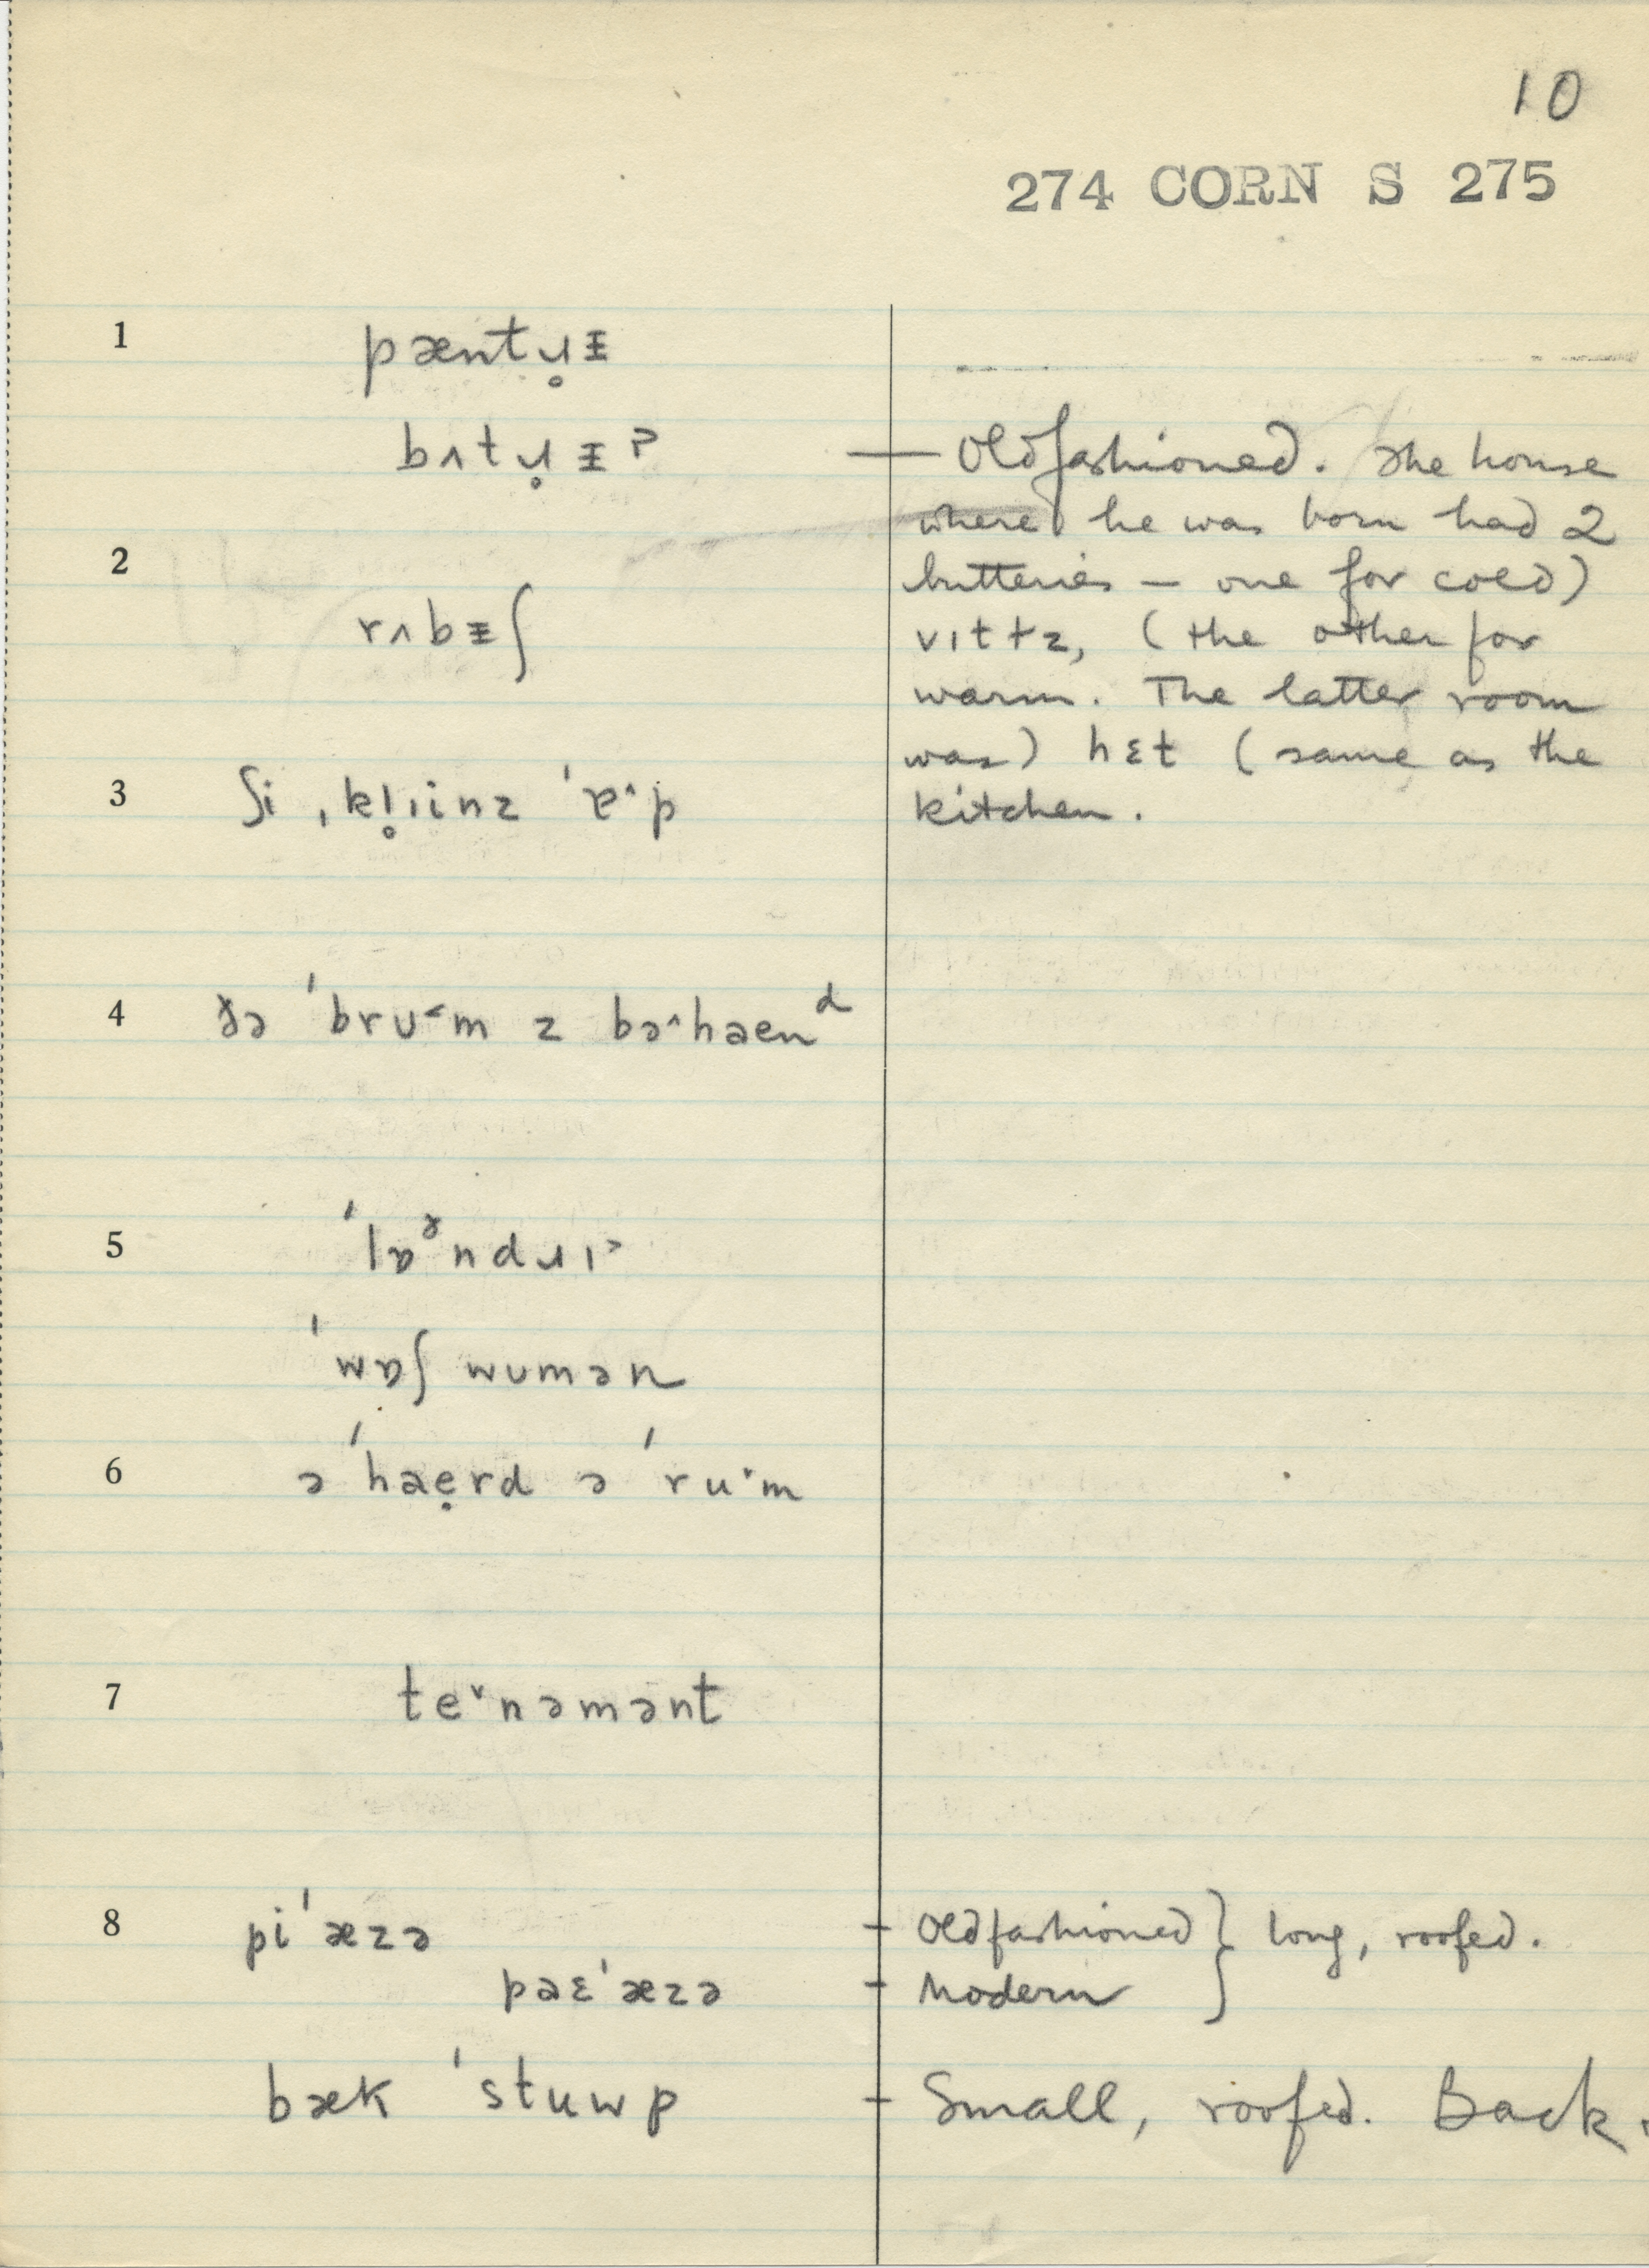 10
274 CORN S 275
1 pæntɹ̥ᵻ
bʌtɹ̥ᵻ˃ — Oldfashioned. The house
where he was born had 2
2 butteries — one for cold)
rʌbᵻʃ vɪtɫz, (the other for
warm. The latter room
was) hɛt (same as the
3 ʃi ˌkl̥ɪinz ˈɐ˄p kitchen.
4 ðə ˈbrʊ˂m z bə˄haen ᵈ
5 ˈlɒᶠndɹɪ˃
ˈwɒʃ wʊmən
6 ə ˈhaẹrd ə ˈruˑm
7 te˅nəmənt
8 piˈæzə - Oldfashioned } long, roofed.
pəɛˈæzə - Modern
bæk ˈstuwp - Small, roofed. Back.